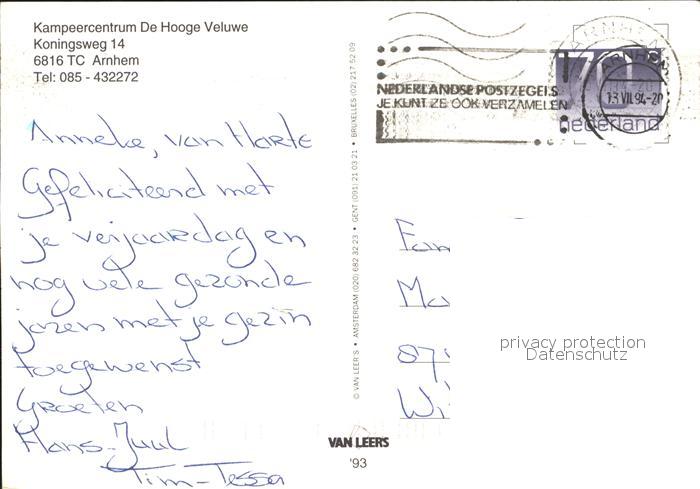 Kampeercentrum De Hooge Veluwe
Koningsweg 14
6816 TC Arnhem
Tel: 085 - 432272
Anneke, van Harte
Gefeliciteerd met
je verjaardag en
nog vele gezonde
jaren met je gezin
toegewenst
Groeten
Hans-Juul
Tim-Tessa
© VAN LEER'S • AMSTERDAM (020) 682 32 23 • GENT (091) 21 03 21 • BRUXELLES (02) 217 52 09
NEDERLANDSE POSTZEGELS
JE KUNT ZE OOK VERZAMELEN
ARNHEM
70
nederland
ARNHEM
13.VII.94-20
Fam
Ma
87
Wi
privacy protection
Datenschutz
VAN LEERS
'93